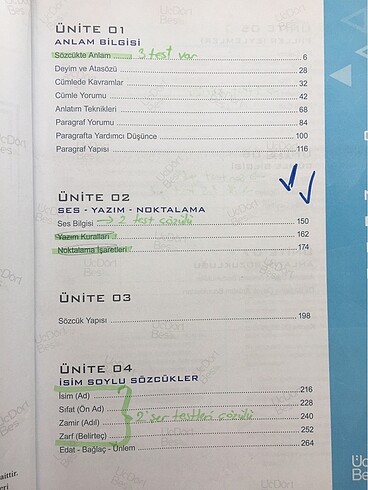 ÜNİTE 01
ANLAM BİLGİSİ
Sözcükte Anlam 3 test var 6
Deyim ve Atasözü 28
Cümlede Kavramlar 32
Cümle Yorumu 42
Anlatım Teknikleri 68
Paragraf Yorumu 84
Paragrafta Yardımcı Düşünce 100
Paragraf Yapısı 116
ÜNİTE 02
SES - YAZIM - NOKTALAMA
Ses Bilgisi → 2 test çözülü 150
Yazım Kuralları 162
Noktalama İşaretleri 174
ÜNİTE 03
Sözcük Yapısı 198
ÜNİTE 04
İSİM SOYLU SÖZCÜKLER
İsim (Ad) 216
Sıfat (Ön Ad) 228
Zamir (Adıl) 2'şer testleri çözülü 240
Zarf (Belirteç) 252
Edat - Bağlaç - Ünlem 264